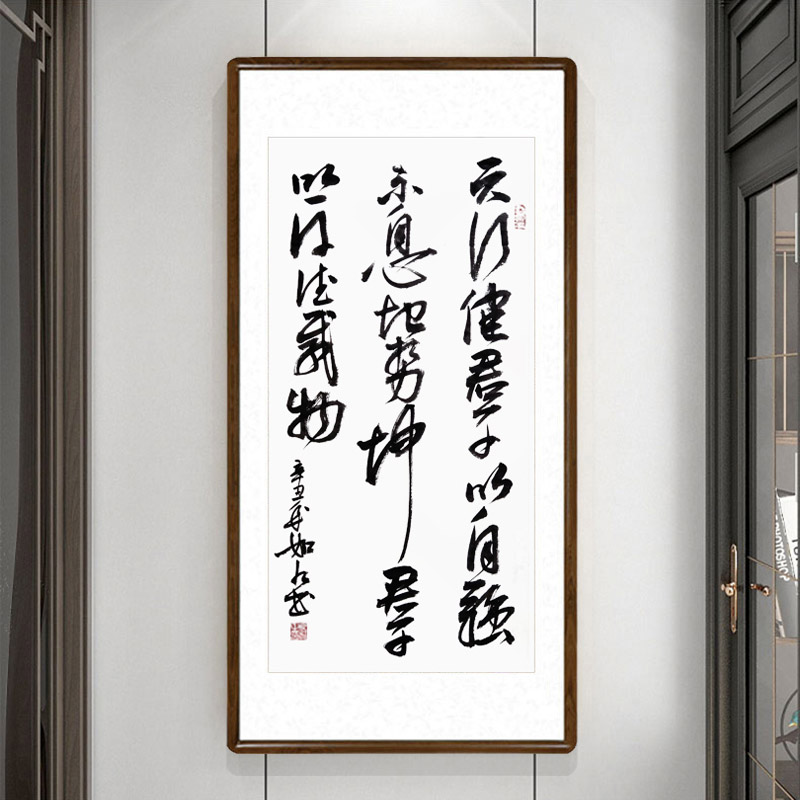 天行健君子以自强
不息地势坤君子
以厚德载物
辛丑
PHOTOSHOP